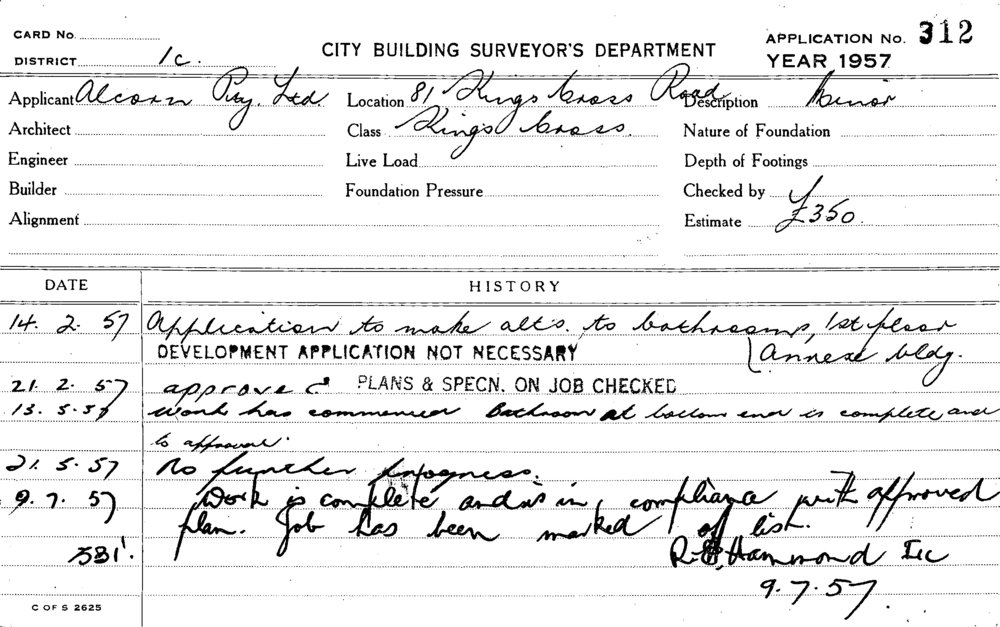 CARD No.
DISTRICT 1c.
CITY BUILDING SURVEYOR'S DEPARTMENT
APPLICATION No. 312
YEAR 1957
Applicant Alcorn Pty. Ltd. Location 81 Kings Cross Road Description Minor
Architect Class Kings Cross. Nature of Foundation
Engineer Live Load Depth of Footings
Builder Foundation Pressure Checked by
Alignment Estimate £350.
DATE HISTORY
14. 2. 57 Application to make alts. to bathrooms, 1st floor
DEVELOPMENT APPLICATION NOT NECESSARY Annexe bldg.
21. 2. 57 approved PLANS & SPECN. ON JOB CHECKED
13. 5. 57 Work has commenced Bathroom at bottom end is complete and
to approval.
21. 5. 57 No further progress.
9. 7. 57 Work is complete and is in compliance with approved
plan. Job has been marked off list.
531'. Hammond
9.7.57
C OF S 2625